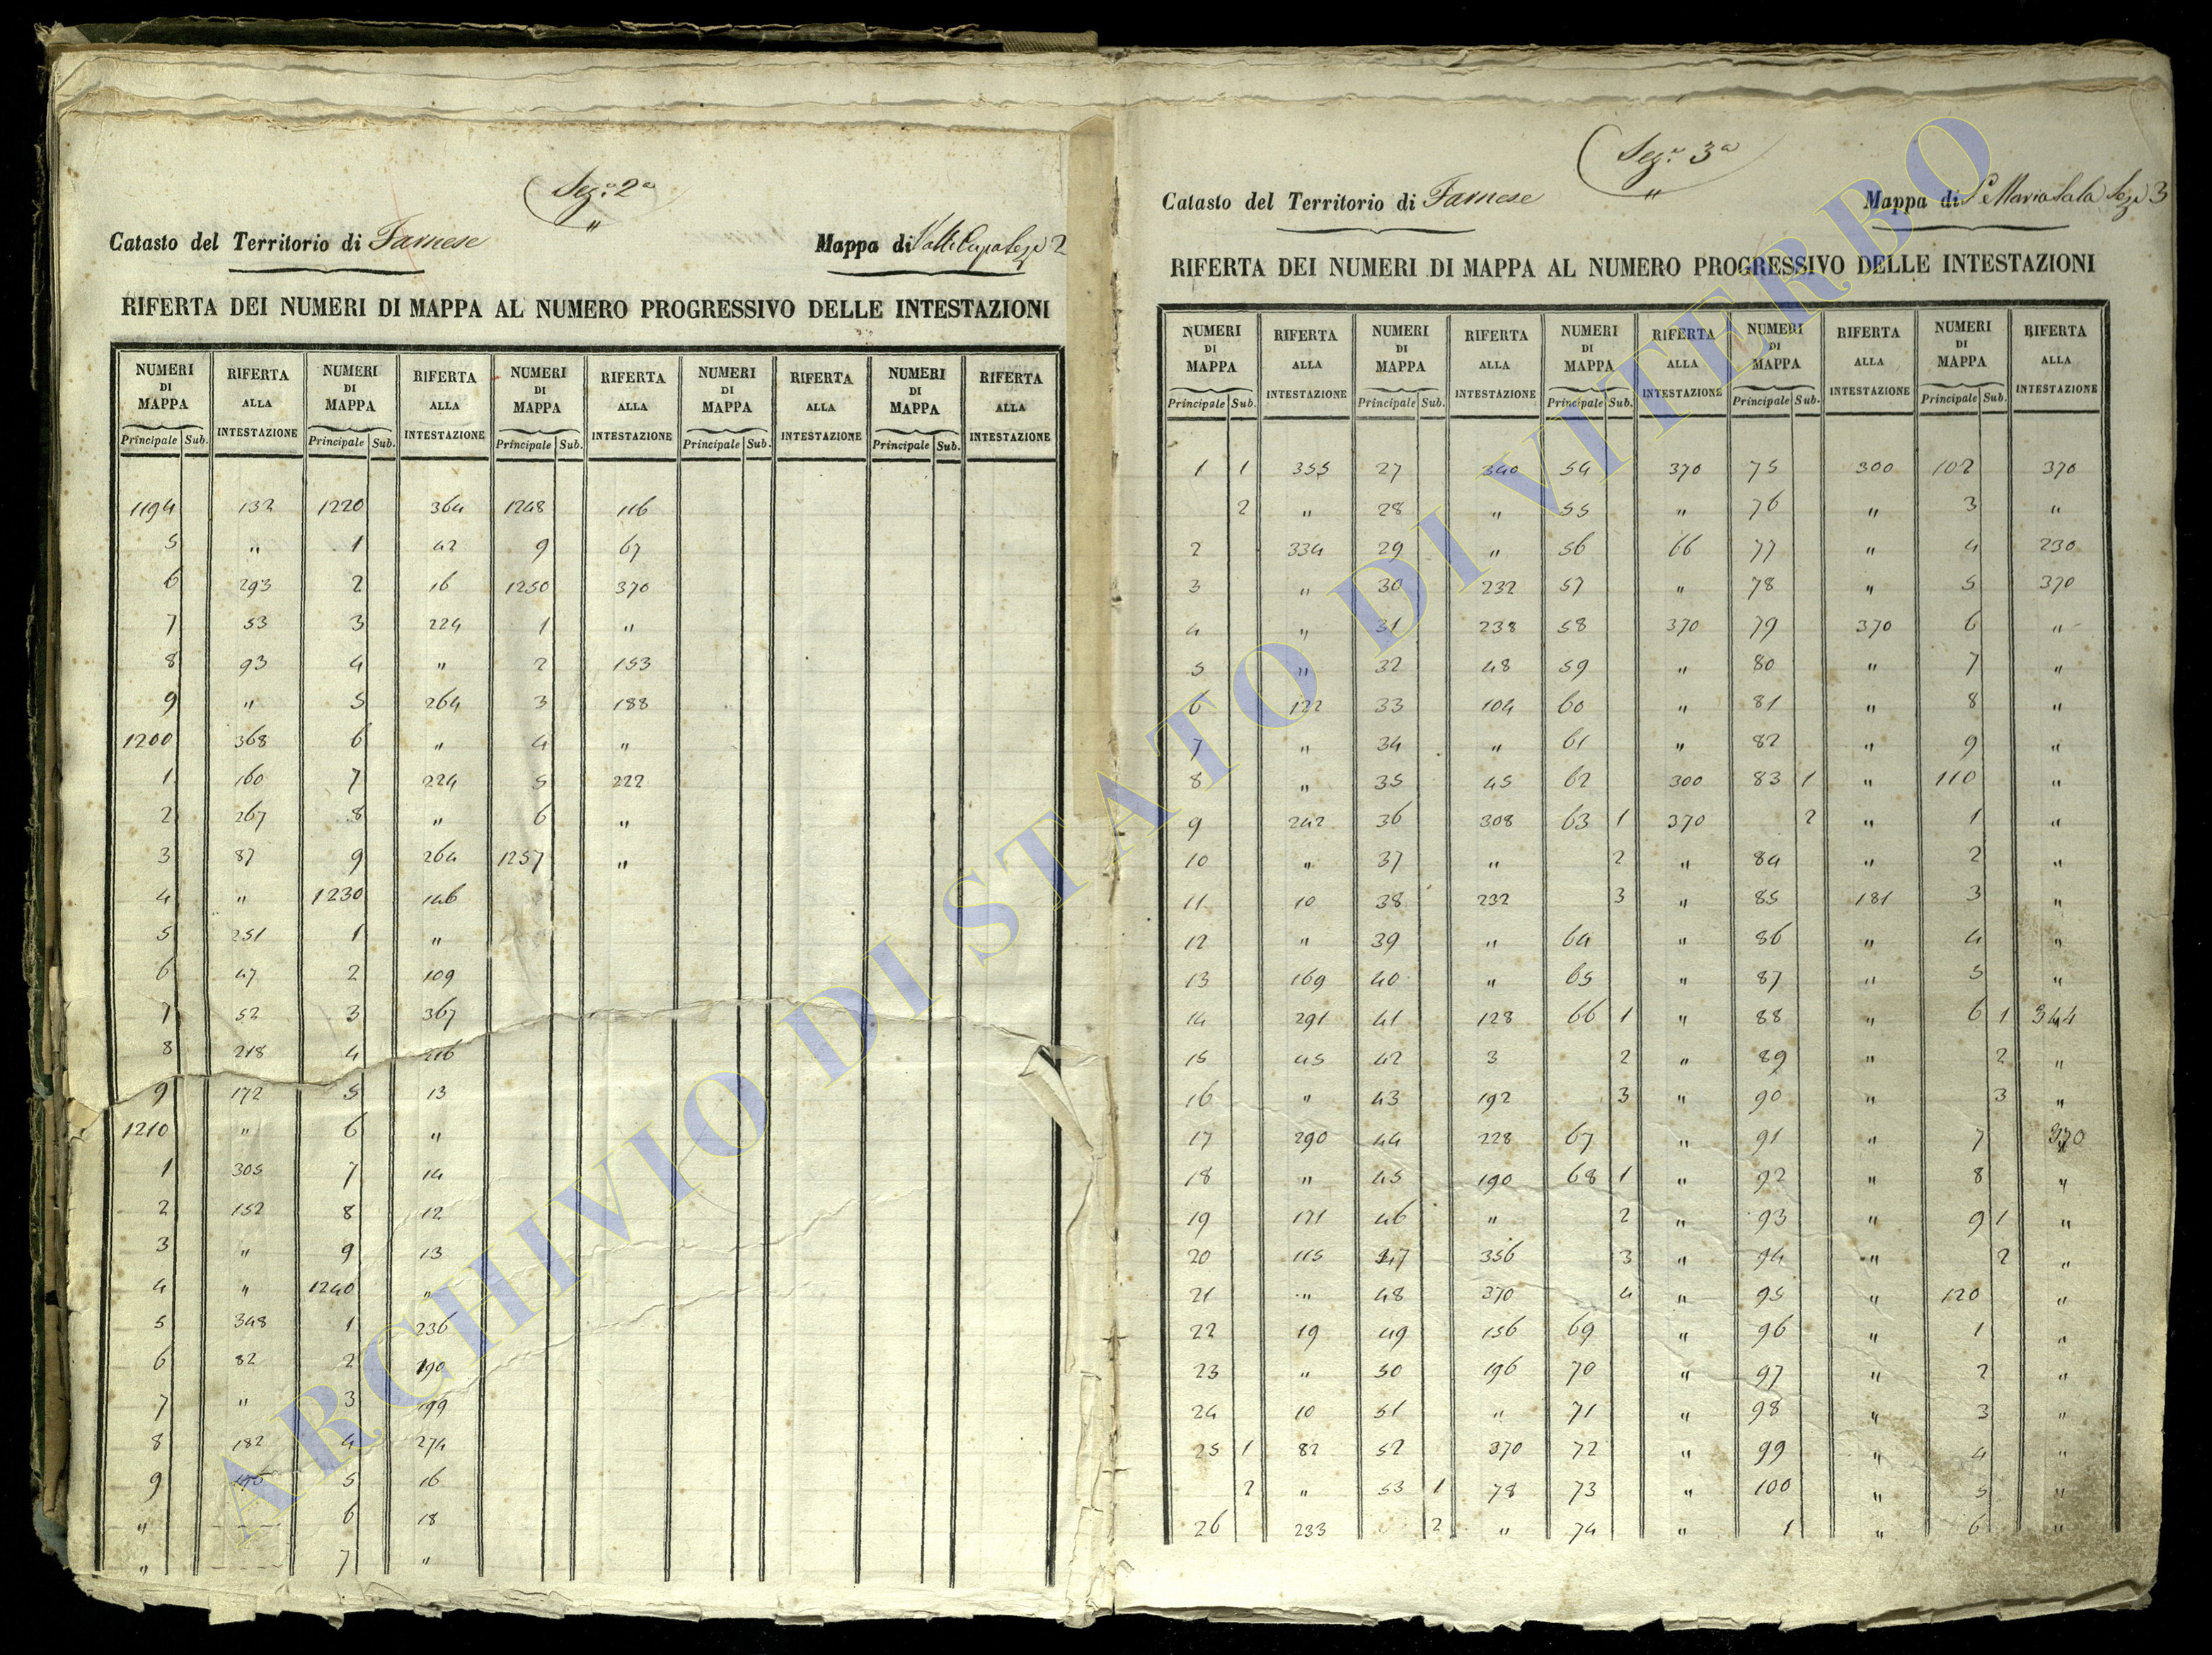 Sez.e 2a
"
Catasto del Territorio di Farnese Mappa di Valle Cupa Seze 2
RIFERTA DEI NUMERI DI MAPPA AL NUMERO PROGRESSIVO DELLE INTESTAZIONI
NUMERI DI MAPPA RIFERTA ALLA INTESTAZIONE NUMERI DI MAPPA RIFERTA ALLA INTESTAZIONE NUMERI DI MAPPA RIFERTA ALLA INTESTAZIONE NUMERI DI MAPPA RIFERTA ALLA INTESTAZIONE NUMERI DI MAPPA RIFERTA ALLA INTESTAZIONE
Principale Sub. Principale Sub. Principale Sub. Principale Sub. Principale Sub.
1194 132 1220 364 1248 116
5 " 1 42 9 67
6 293 2 16 1250 370
7 53 3 224 1 "
8 93 4 " 2 153
9 " 5 264 3 188
1200 368 6 " 4 "
1 160 7 224 5 222
2 267 8 " 6 "
3 87 9 264 1257 "
4 " 1230 146
5 251 1 "
6 47 2 109
7 52 3 367
8 218 4 216
9 172 5 13
1210 " 6 "
1 305 7 14
2 152 8 12
3 " 9 13
4 " 1240 "
5 348 1 236
6 82 2 190
7 " 3 199
8 182 4 274
9 5 16
" 6 18
" 7 "
Sez.e 3a
"
Catasto del Territorio di Farnese Mappa di S. Maria Sala Seze 3
RIFERTA DEI NUMERI DI MAPPA AL NUMERO PROGRESSIVO DELLE INTESTAZIONI
NUMERI DI MAPPA RIFERTA ALLA INTESTAZIONE NUMERI DI MAPPA RIFERTA ALLA INTESTAZIONE NUMERI DI MAPPA RIFERTA ALLA INTESTAZIONE NUMERI DI MAPPA RIFERTA ALLA INTESTAZIONE NUMERI DI MAPPA RIFERTA ALLA INTESTAZIONE
Principale Sub. Principale Sub. Principale Sub. Principale Sub. Principale Sub.
1 1 355 27 340 54 370 75 300 102 370
2 " 28 " 55 " 76 " 3 "
2 334 29 " 56 66 77 " 4 230
3 " 30 232 57 " 78 " 5 370
4 " 31 238 58 370 79 370 6 "
5 " 32 48 59 " 80 " 7 "
6 122 33 104 60 " 81 " 8 "
7 " 34 " 61 " 82 " 9 "
8 " 35 45 62 300 83 1 " 110 "
9 242 36 308 63 1 370 2 " 1 "
10 " 37 " 2 " 84 " 2 "
11 10 38 232 3 " 85 181 3 "
12 " 39 " 64 " 86 " 4 "
13 169 40 " 65 " 87 " 5 "
14 291 41 128 66 1 " 88 " 6 1 344
15 45 42 3 2 " 89 " 2 "
16 " 43 192 3 " 90 " 3 "
17 290 44 228 67 " 91 " 7 370
18 " 45 190 68 1 " 92 " 8 "
19 171 46 " 2 " 93 " 9 1 "
20 115 47 356 3 " 94 " 2 "
21 " 48 370 4 " 95 " 120 "
22 19 49 156 69 " 96 " 1 "
23 " 50 196 70 " 97 " 2 "
24 10 51 " 71 " 98 " 3 "
25 1 82 52 370 72 " 99 " 4 "
2 " 53 1 78 73 " 100 " 5 "
26 233 2 " 74 " 1 " 6 "
ARCHIVIO DI STATO DI VITERBO